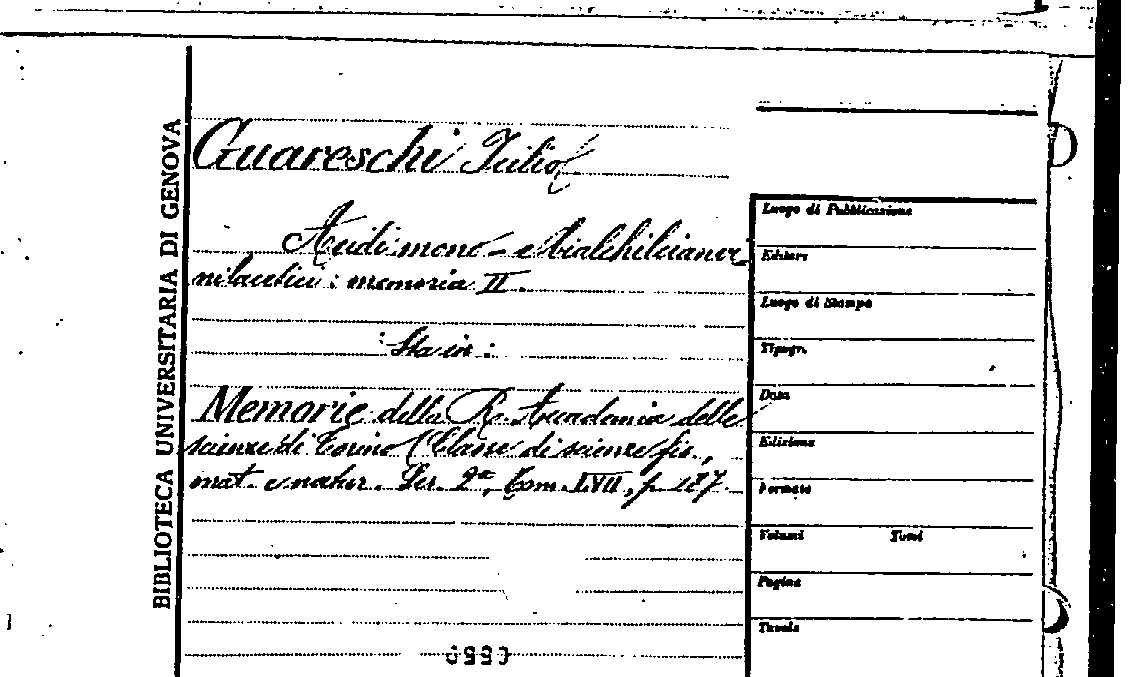 BIBLIOTECA UNIVERSITARIA DI GENOVA
Guareschi Iulio
mono - e
: memoria II.
Sta in :
Memorie della R. Accademia delle
scienze di Torino (Classe di scienze fis.,
mat. e natur. Ser. 2ª, Tom. LVII, p. 187.
Luogo di Pubblicazione
Editore
Luogo di Stampa
Tipogr.
Data
Edizione
Formato
Volumi Tomi
Pagine
Tavole